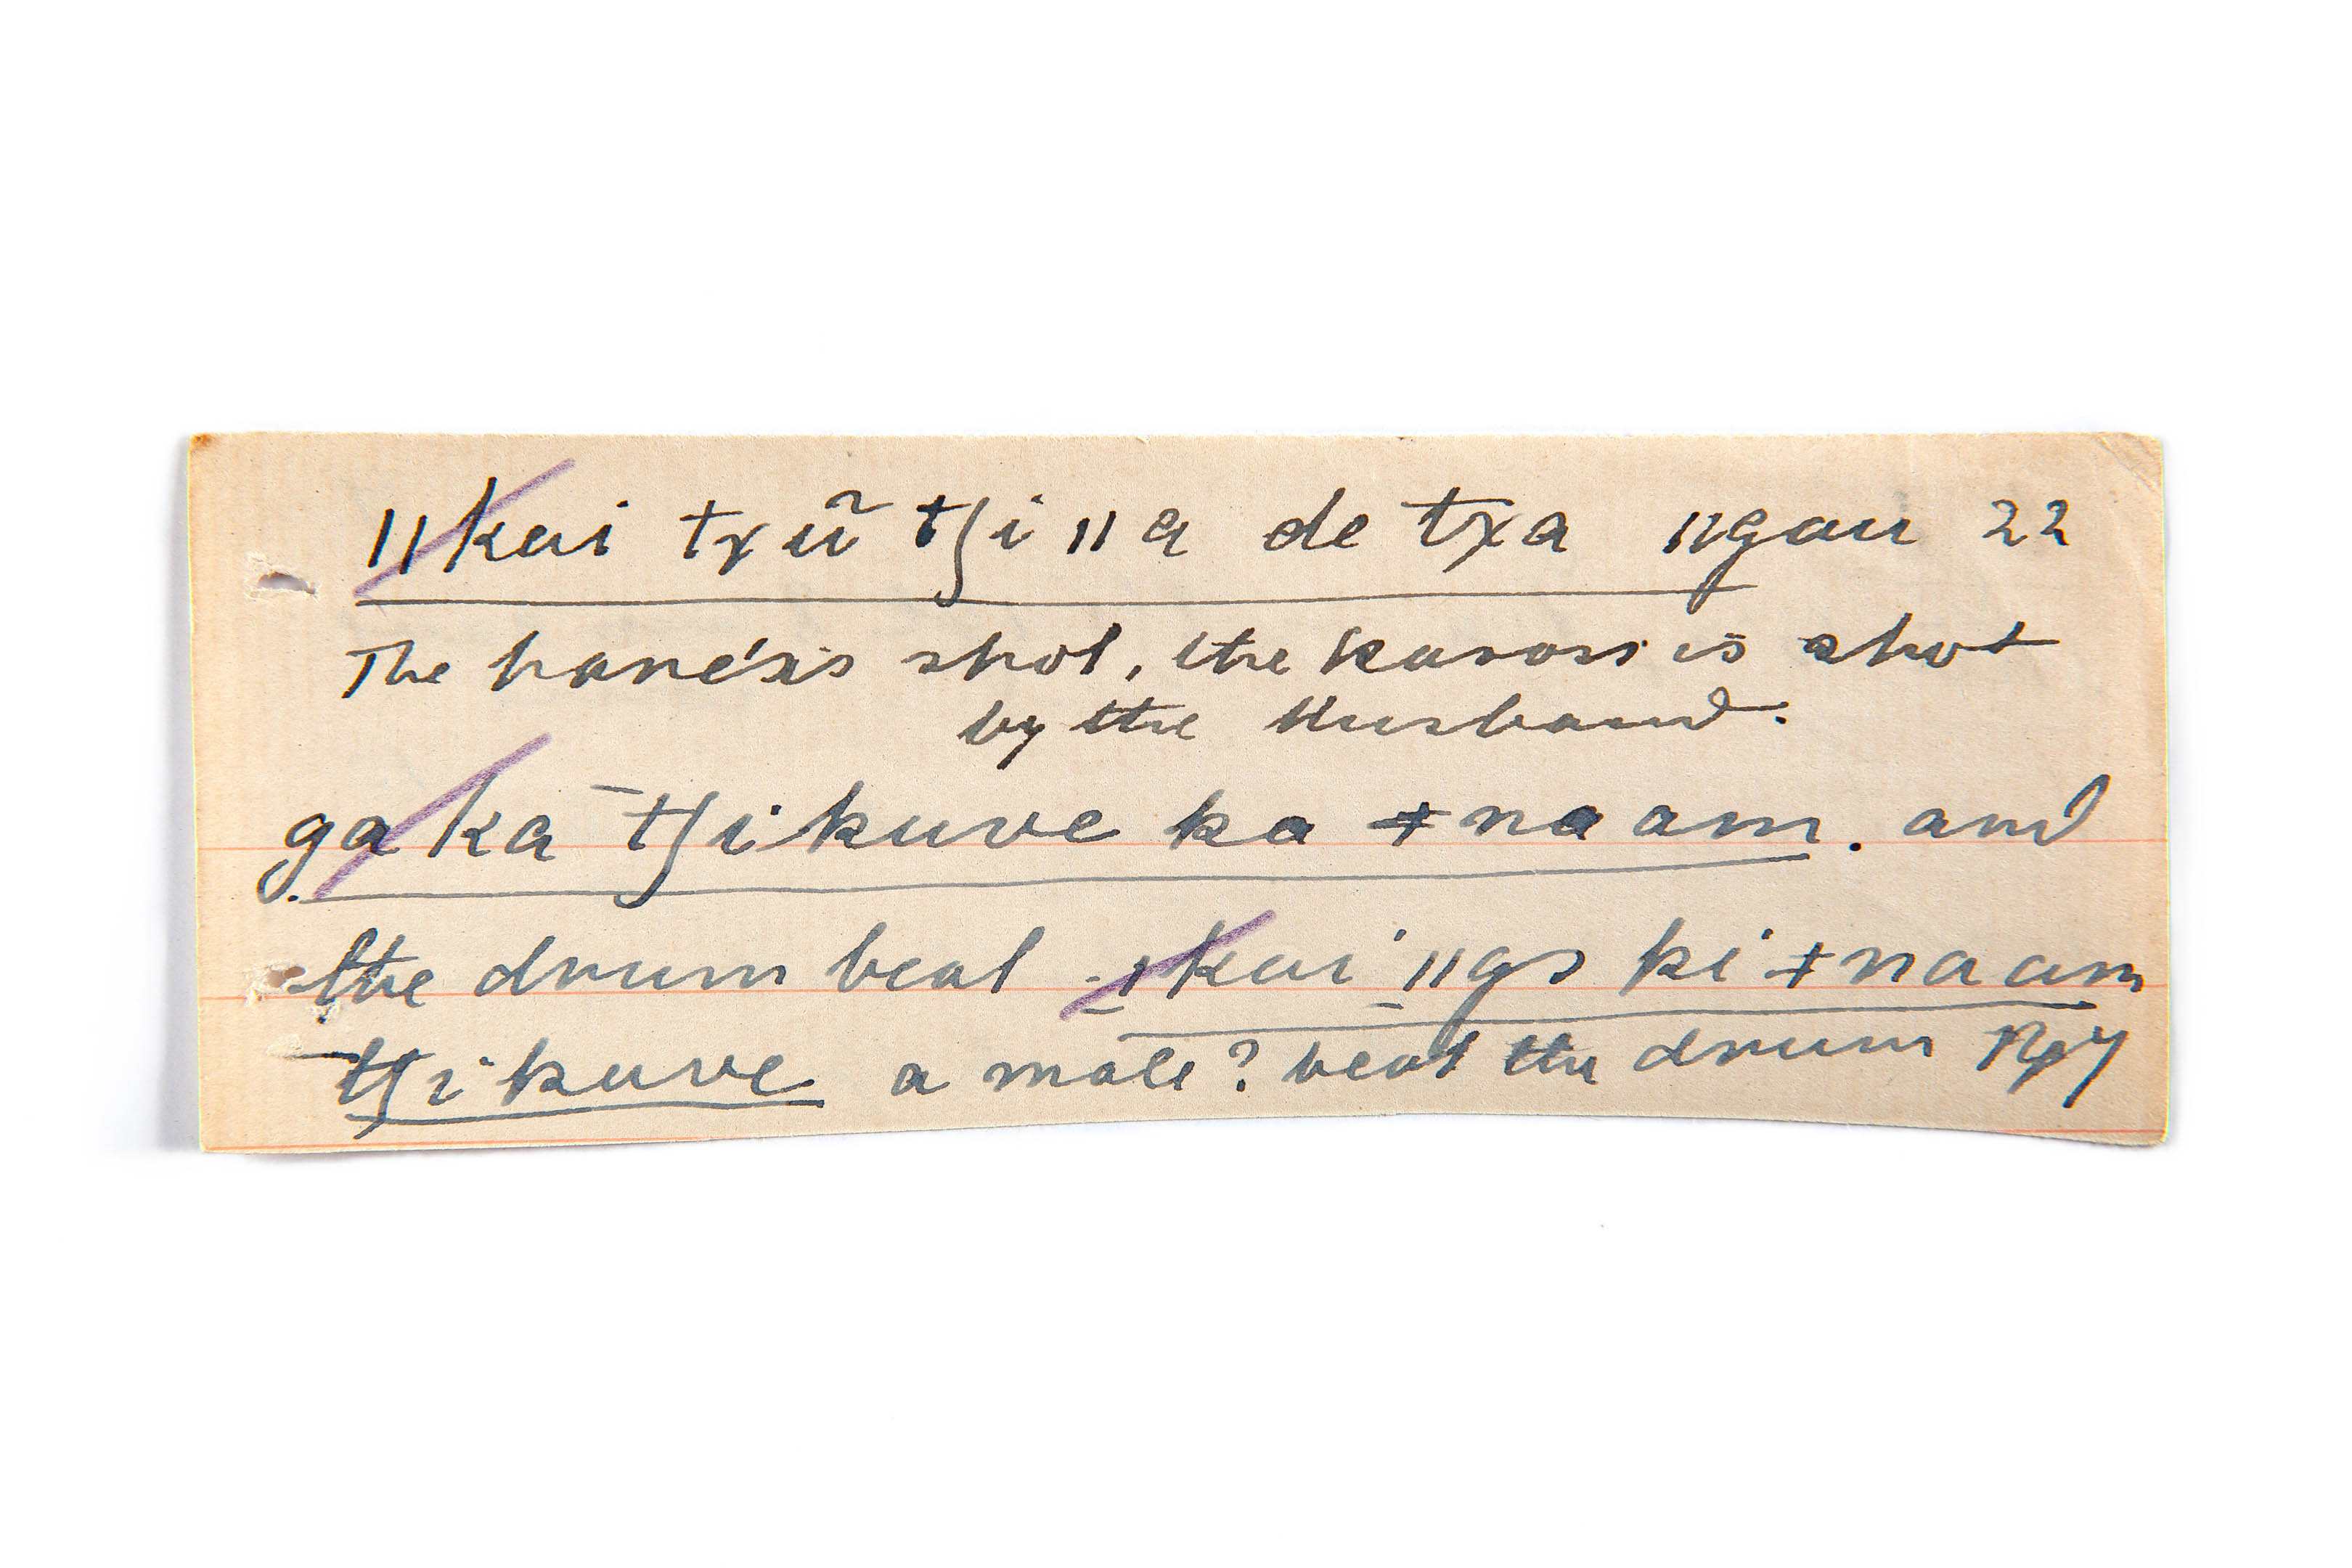 ǁkai txũ tʃi ǁa de txa ǁgau 22
The hare's is shot, the kaross is shot
by the Husband.
ga ka tʃikuve ka ǂnaam. and
the drum beat ǀkai ǁgs ki ǂnaam
tʃikuve a male? beat the drum